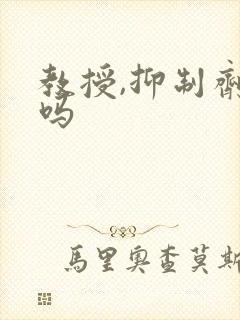 教授,抑制剂
吗
馬里奥查莫斯